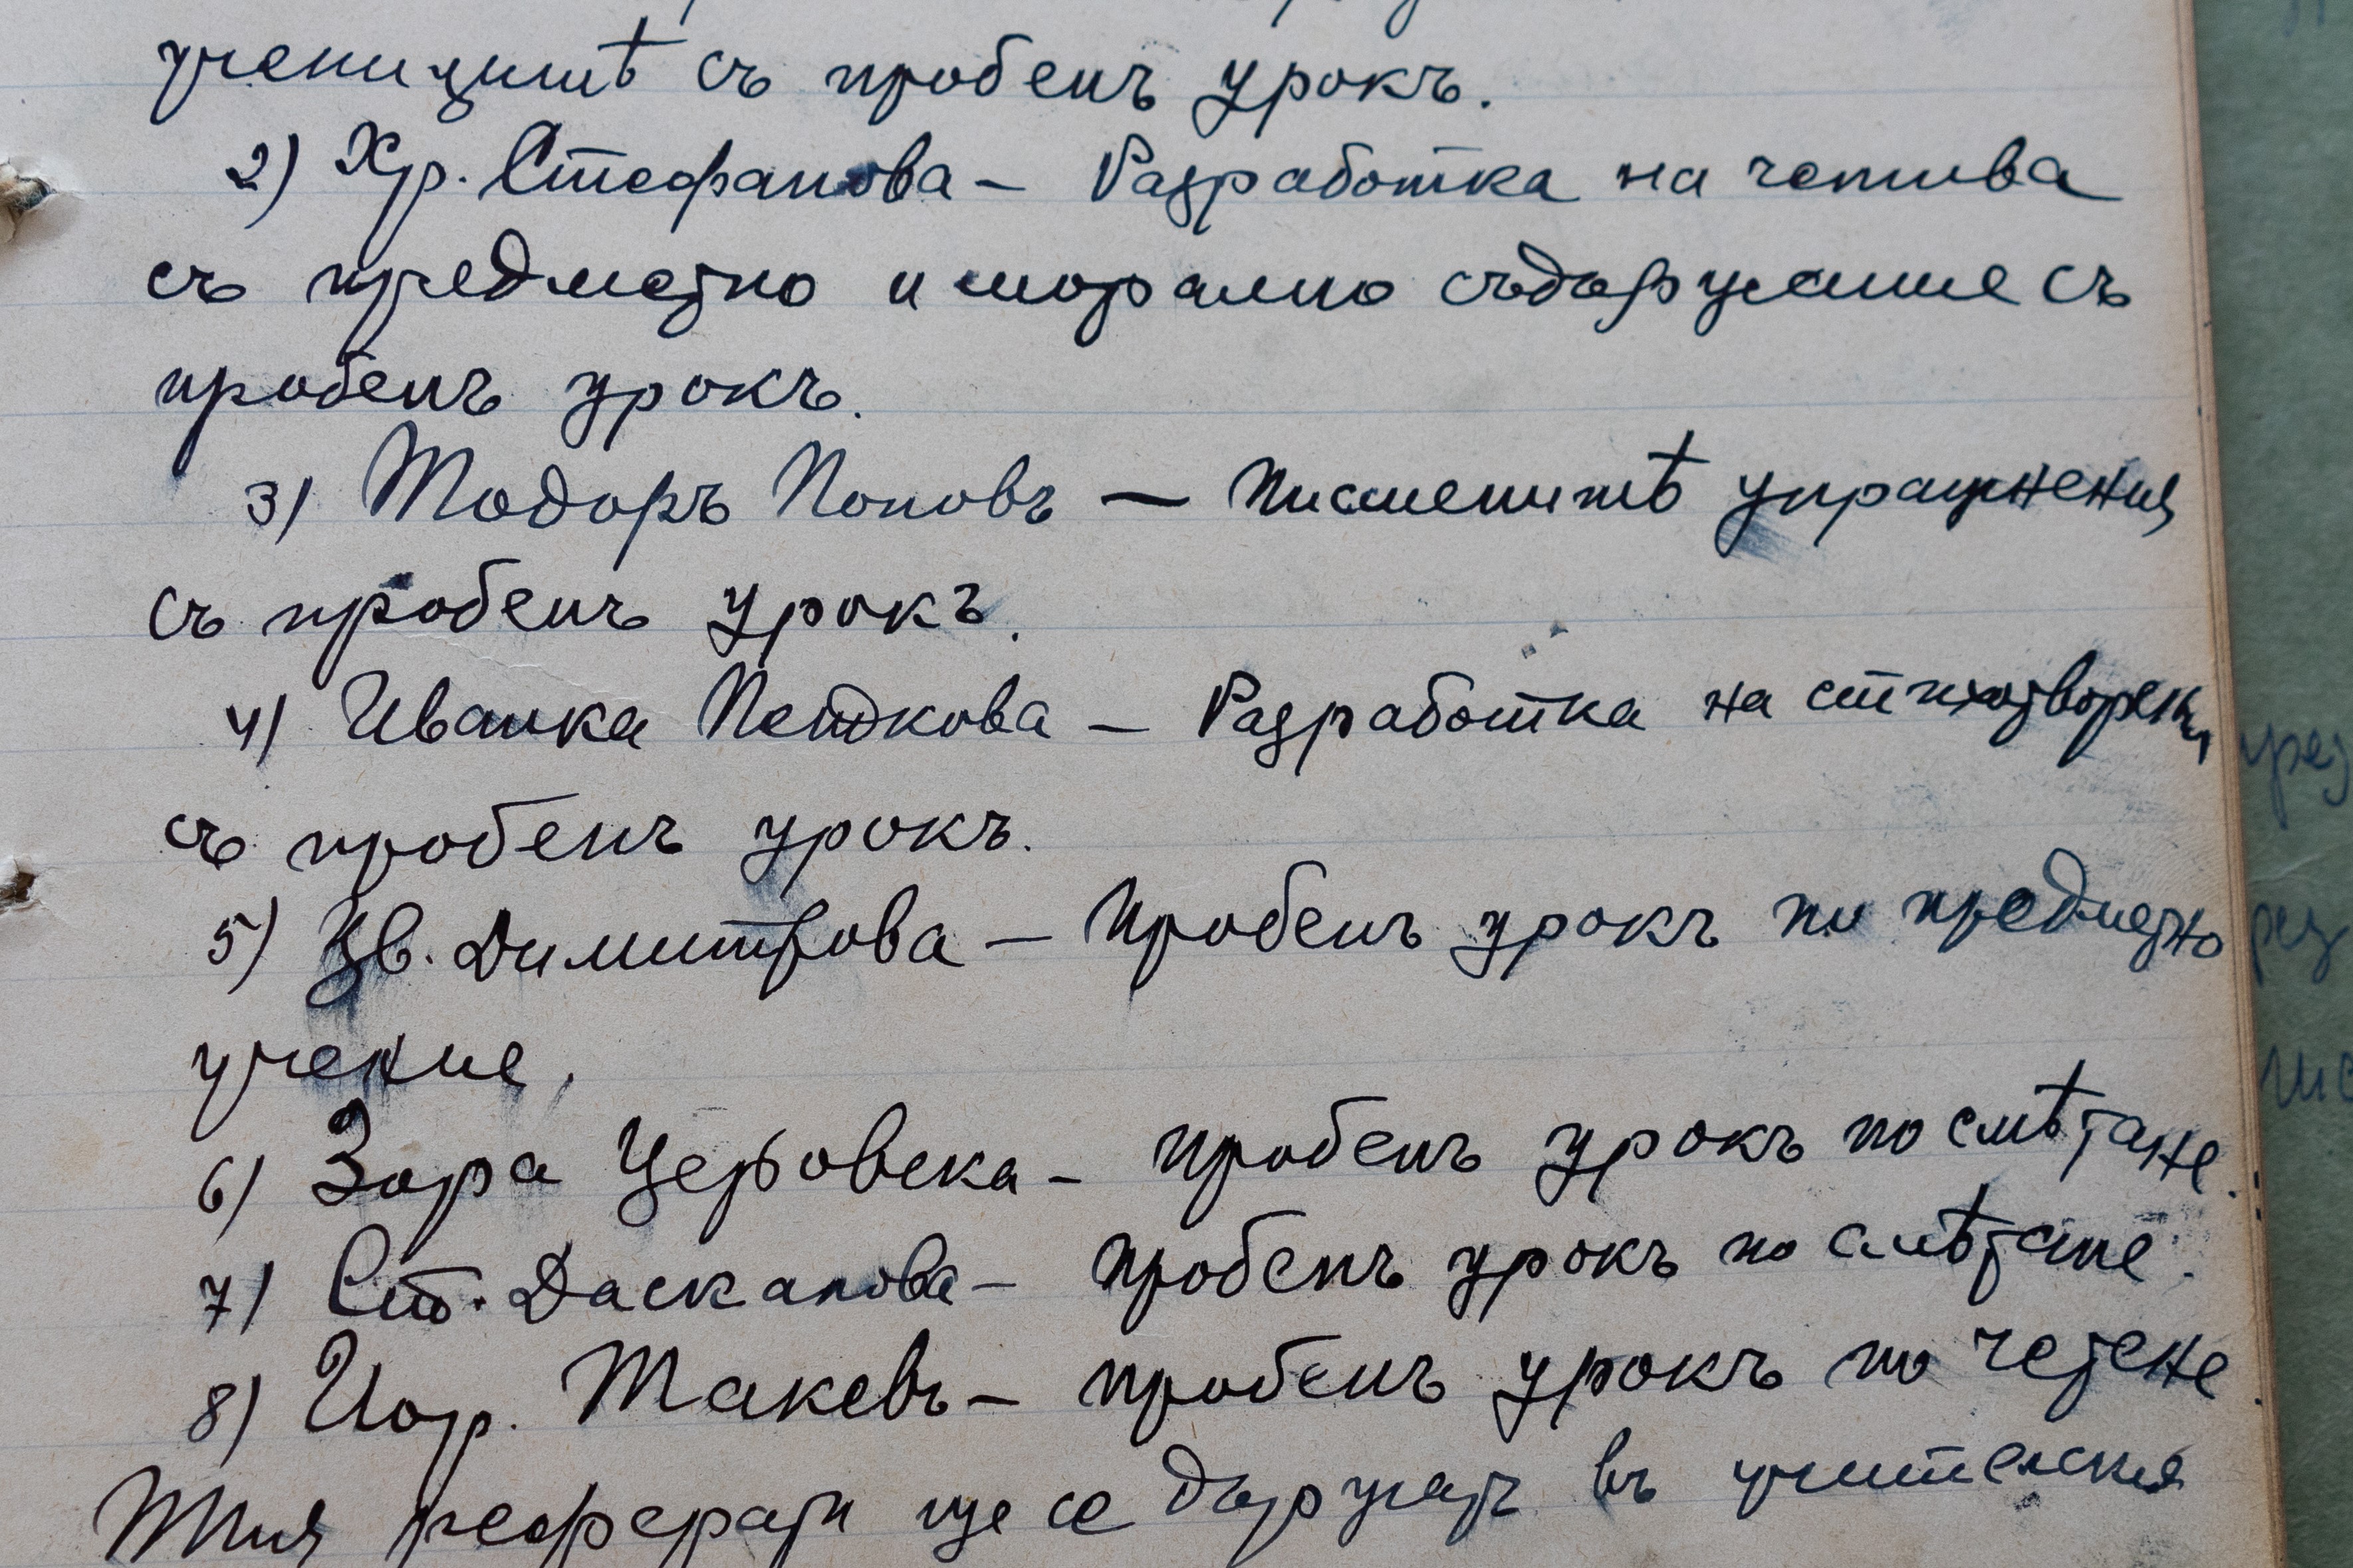 ученицитѣ съ пробенъ урокъ.
2) Хр. Стефанова – Разработка на четива
съ предметно и морално съдържание съ
пробенъ урокъ.
3) Тодоръ Поповъ – Писменитѣ упражнения
съ пробенъ урокъ.
4) Иванка Петкова – Разработка на стихотворения
съ пробенъ урокъ.
5) Цв. Димитрова – Пробенъ урокъ по предметно
учение.
6) Зора Церовска – пробенъ урокъ по смѣтане.
7) Ст. Даскалова – пробенъ урокъ по смѣтане.
8) Йор. Такевъ – пробенъ урокъ по четене.
Тия реферати ще се държатъ въ учителския